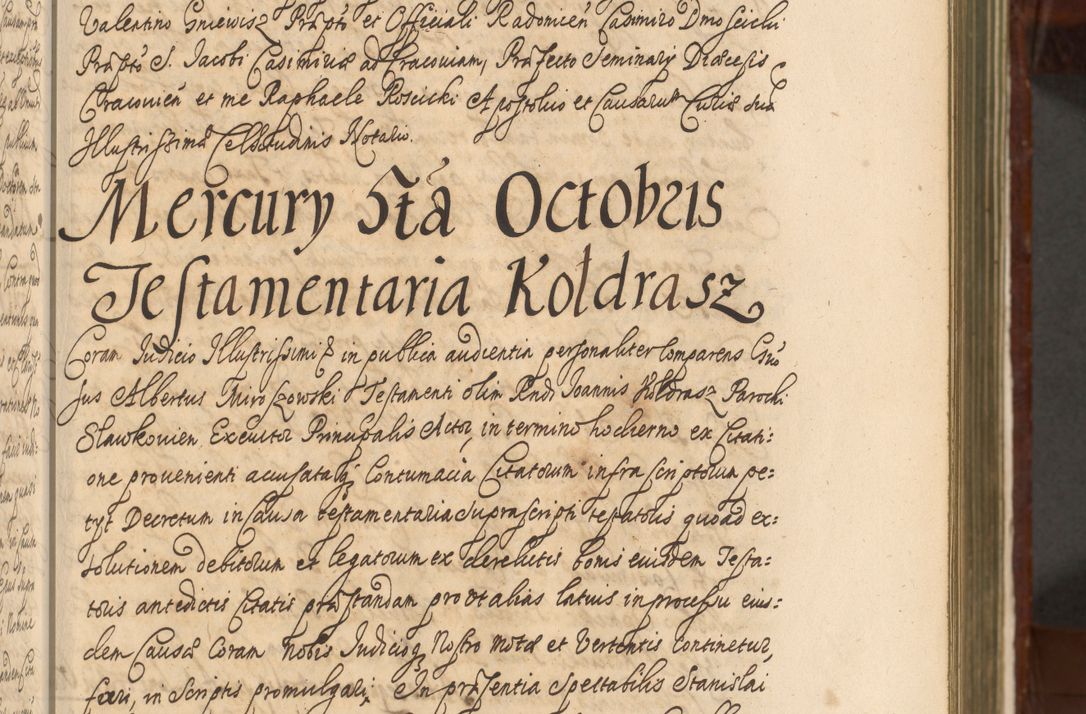 Valentino Gniewisz Præpto et Officiali Radomien Casimiro Dmoscicki
Præpto S. Jacobi Casimiriæ ad Cracoviam, Præfecto Seminarij Diæcesis
Cracovien et me Raphaele Roscicki Apostolico et Causarum Curiæ suæ
Illustrissimæ Celsitudinis Notario.
Mercury 5ta Octobris
Testamentaria Kołdrasz
Coram Judicio Illustrissimi in publica audientia personaliter Comparens
sus Albertus Miroszowski Testamenti olim Rndi Joannis Kołdrasz Parochi
Slawkovien Executor Principalis Actor, in termino hodierno ex Citati:
one provenienti accusataq Contumacia Citatorum infrascriptorum pe:
tyt Decretum in Causa testamentaria suprascripti testatoris quoad ex:
solutionem debitorum et legatorum ex derelictis bonis eiusdem Testa:
toris antedictis Citatis præstandam prout alias latius in processu eius:
dem Causæ Coram Nobis Judicioq Nostro motæ et Vertentis Continetur,
ferri, in Scriptis promulgari, In præsentia Spectabilis Stanislai